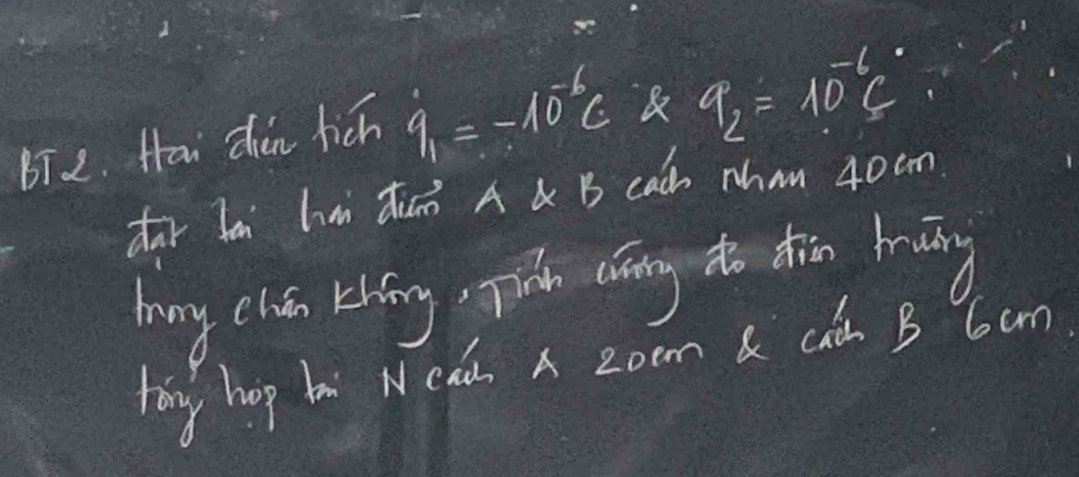 BT2. Hai điện tích q₁ = -10⁻⁶C & q₂ = 10⁻⁶C.
đặt tại hai điểm A & B cách nhau 40cm.
trong chân không, Tính cường độ điện trường
tổng hợp tại N cách A 20cm & cách B 6cm.